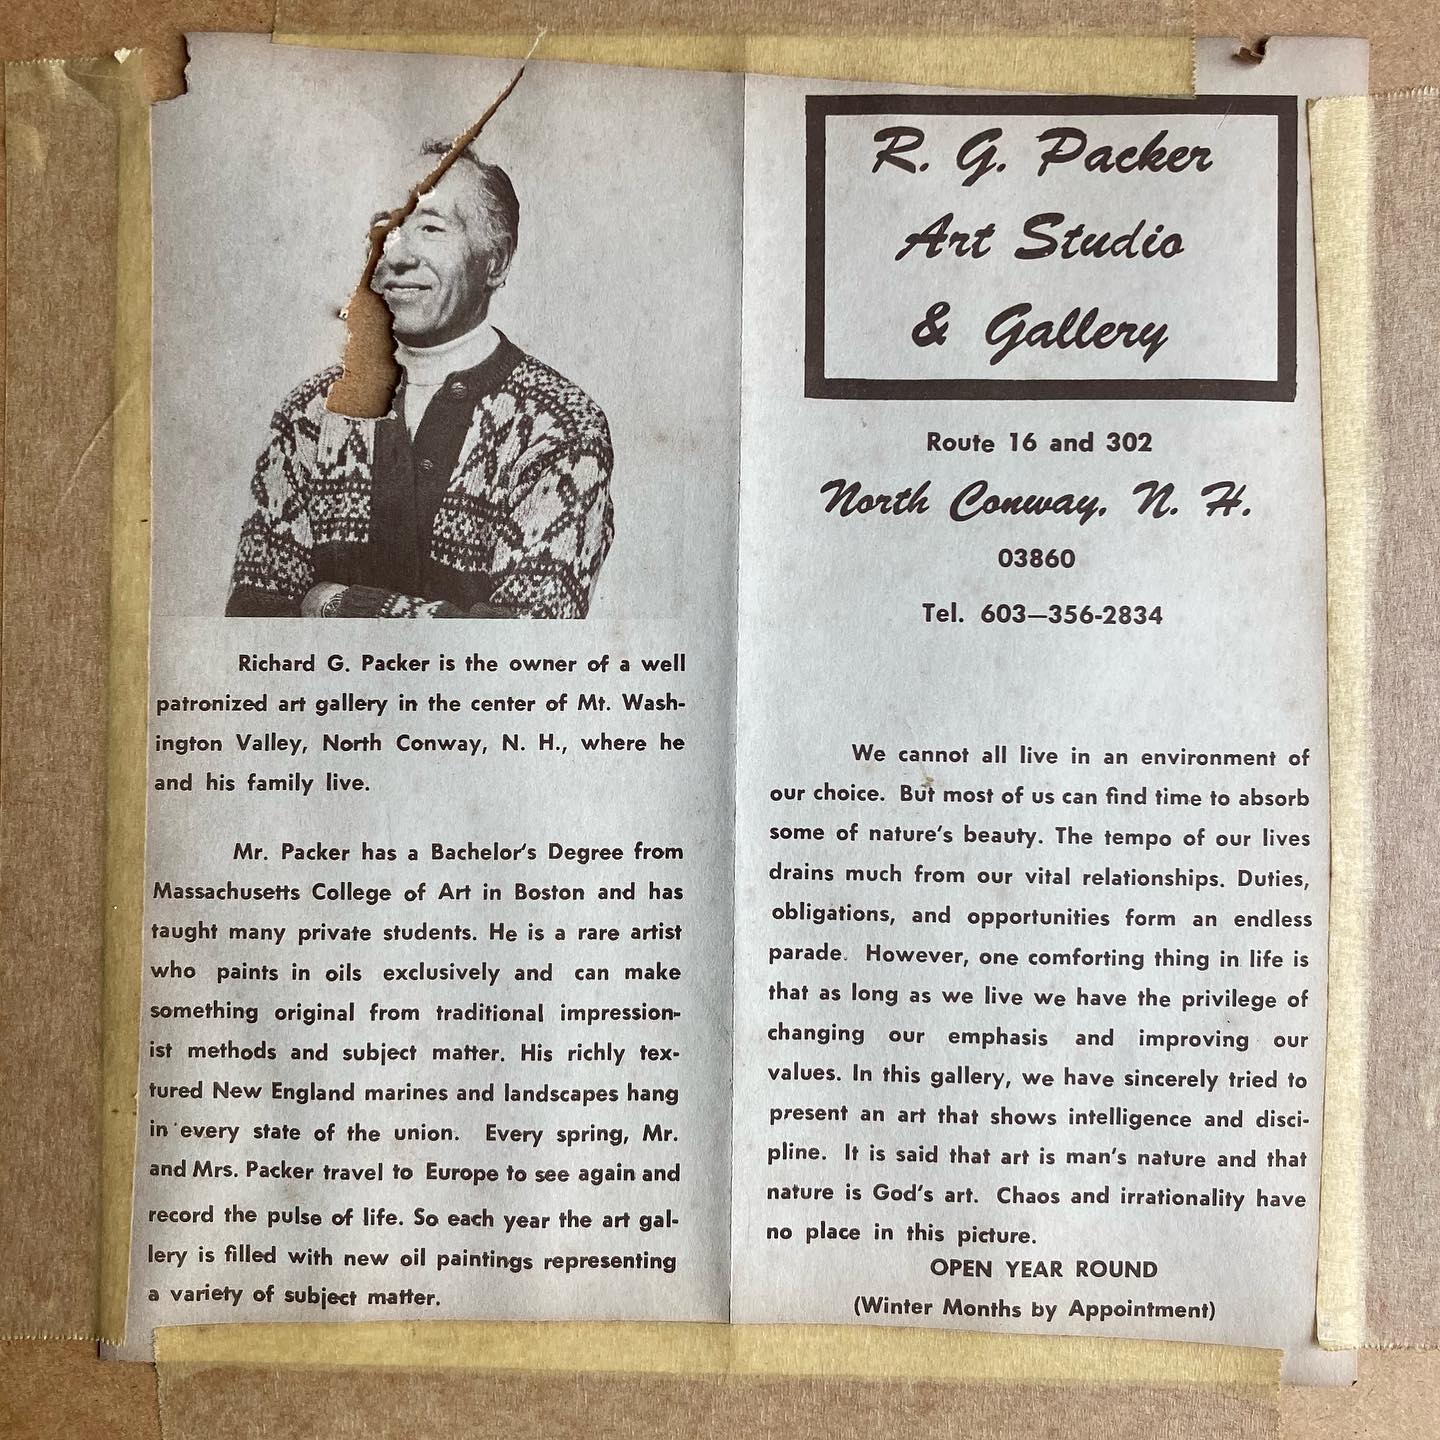 Richard G. Packer is the owner of a well
patronized art gallery in the center of Mt. Wash-
ington Valley, North Conway, N. H., where he
and his family live.
Mr. Packer has a Bachelor's Degree from
Massachusetts College of Art in Boston and has
taught many private students. He is a rare artist
who paints in oils exclusively and can make
something original from traditional impression-
ist methods and subject matter. His richly tex-
tured New England marines and landscapes hang
in every state of the union. Every spring, Mr.
and Mrs. Packer travel to Europe to see again and
record the pulse of life. So each year the art gal-
lery is filled with new oil paintings representing
a variety of subject matter.
R. G. Packer
Art Studio
& Gallery
Route 16 and 302
North Conway, N. H.
03860
Tel. 603—356-2834
We cannot all live in an environment of
our choice. But most of us can find time to absorb
some of nature's beauty. The tempo of our lives
drains much from our vital relationships. Duties,
obligations, and opportunities form an endless
parade. However, one comforting thing in life is
that as long as we live we have the privilege of
changing our emphasis and improving our
values. In this gallery, we have sincerely tried to
present an art that shows intelligence and disci-
pline. It is said that art is man's nature and that
nature is God's art. Chaos and irrationality have
no place in this picture.
OPEN YEAR ROUND
(Winter Months by Appointment)